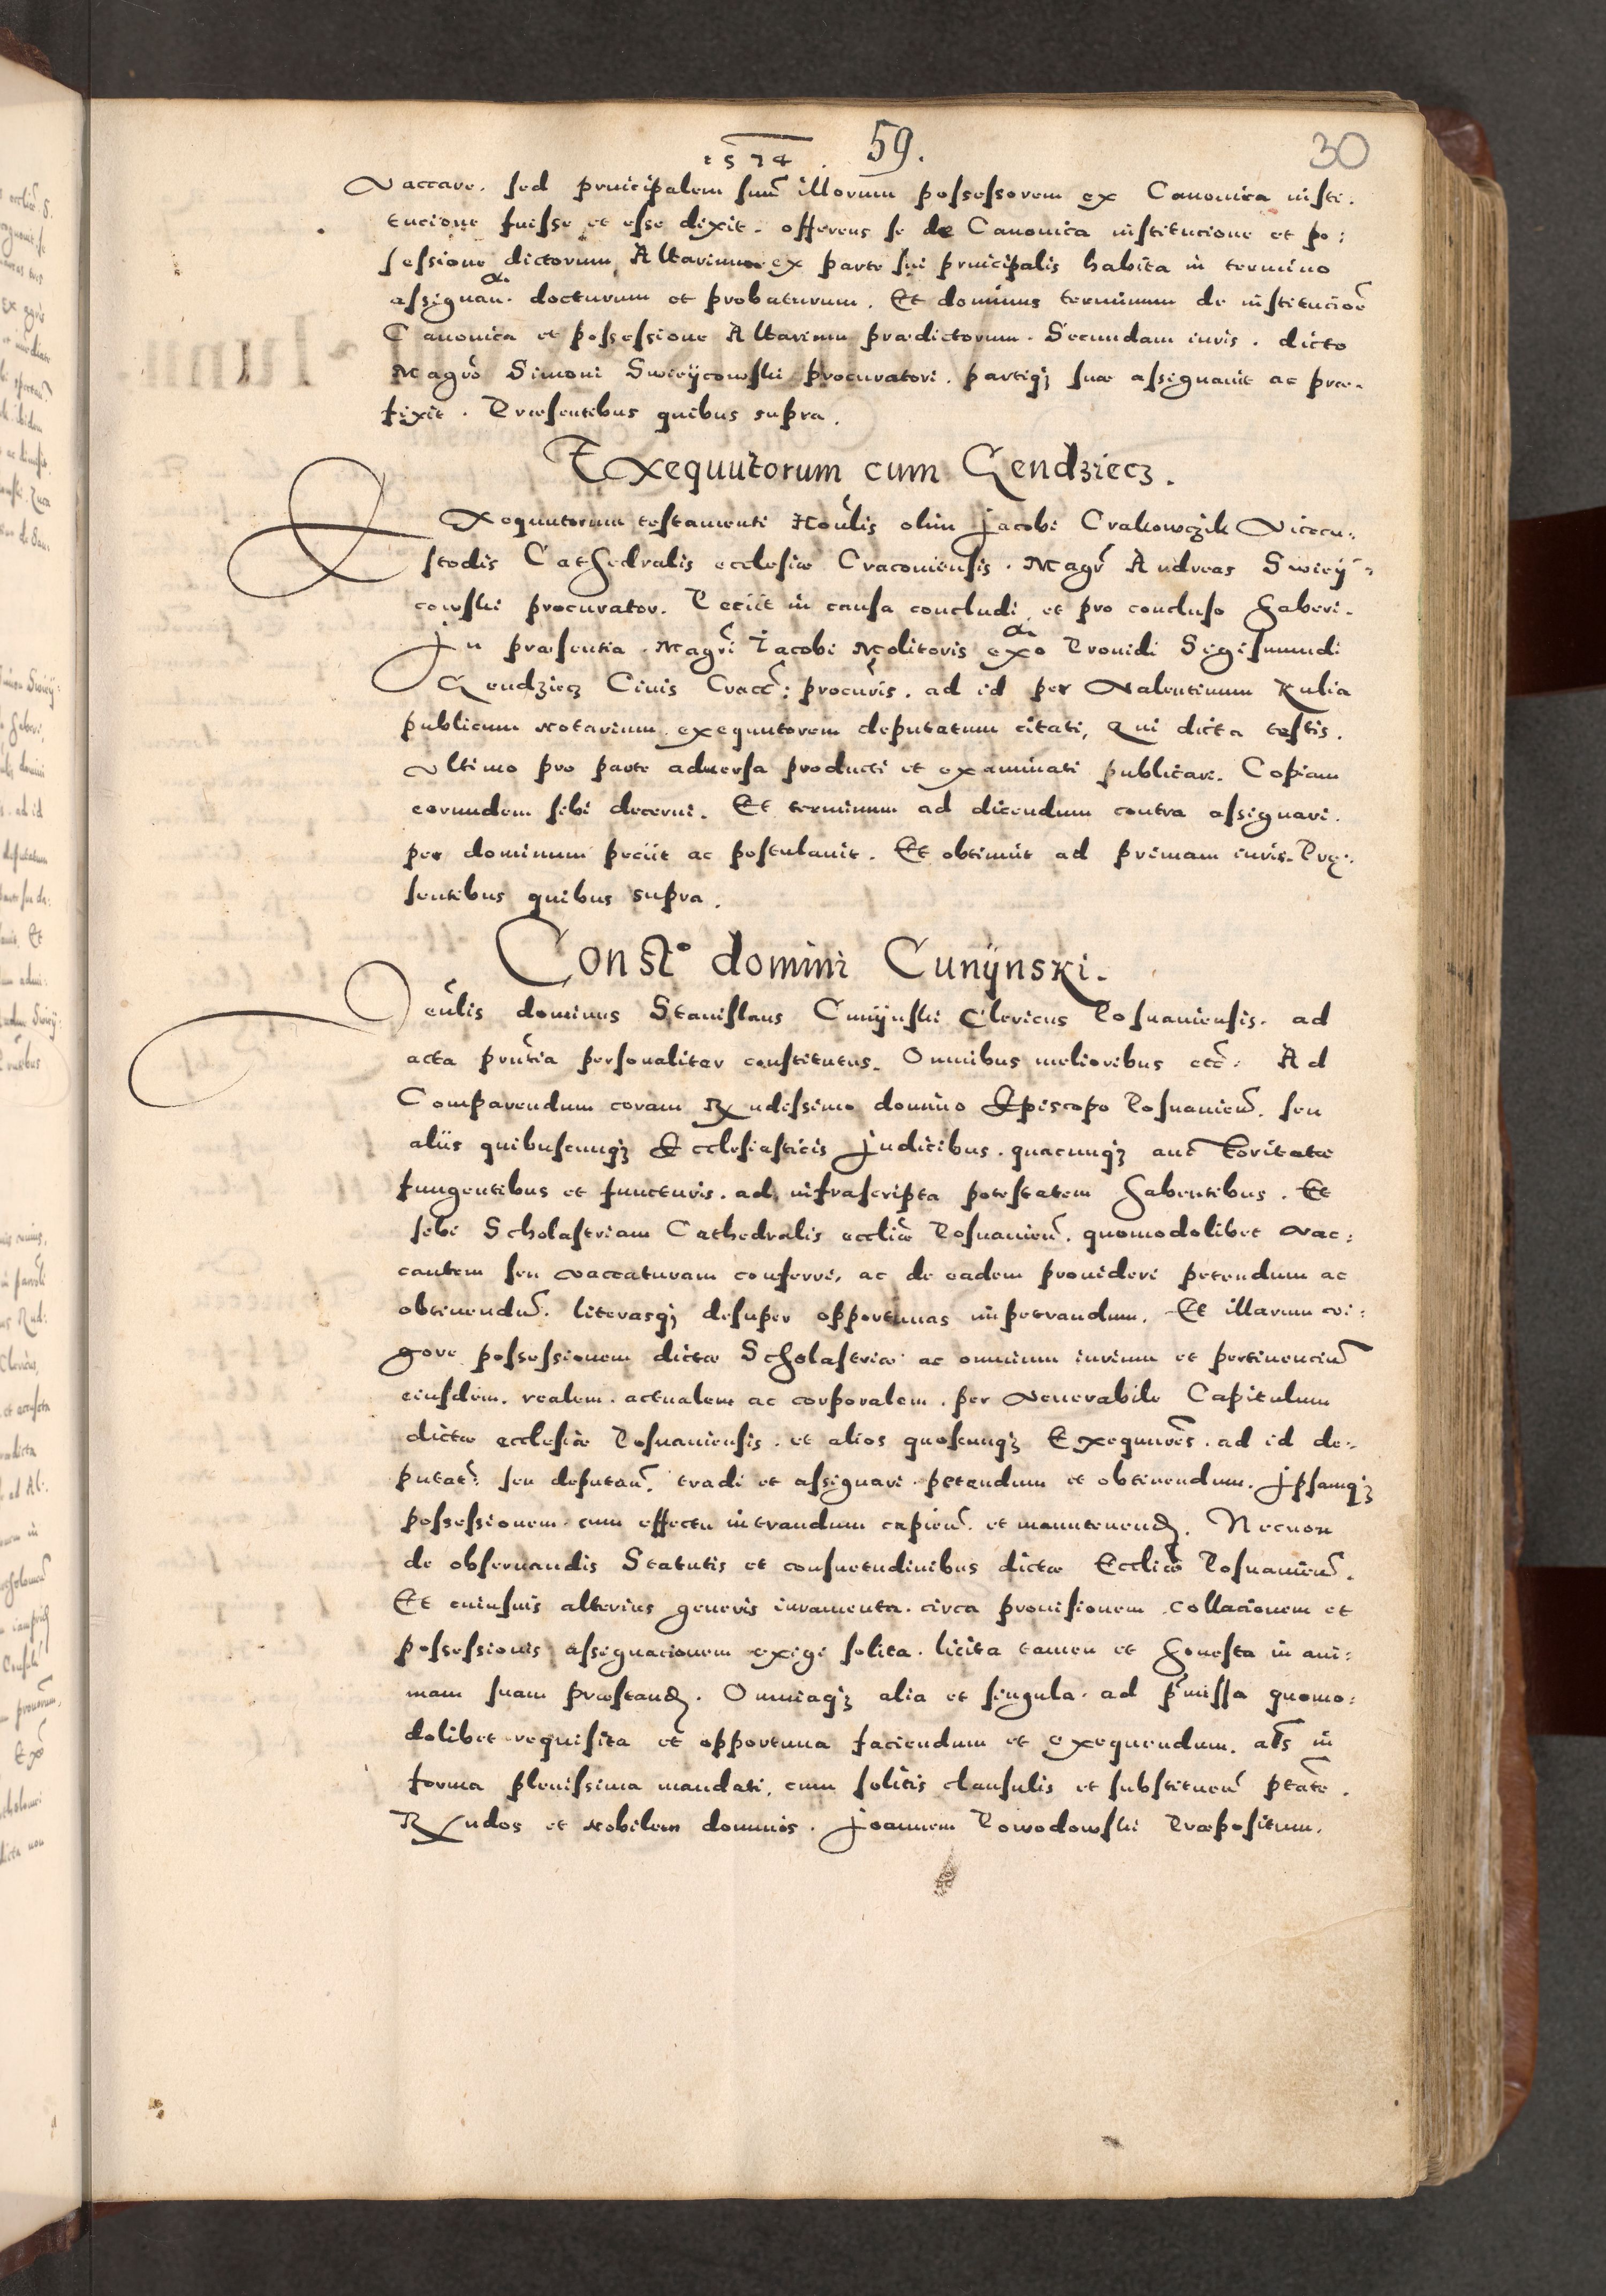 1574. 59. 30
Vaccare. sed principalem suũ illorum possessorem ex Canonica insti.
tucione fuisse et esse dixit. offerens se de Canonica institucione et po:
sessione dictorum Altarium ex parte sui principalis habita in termino
assignan. docturum et probaturum. Et dominus terminum de institucioẽ
Canonica et possessione Altarium prædictorum. Secundam iuris. dicto
Magrõ Simoni Swieÿcowski procuratori. partiqꝫ suæ assignauit ac præ-
fixit. Præsentibus quibus supra.
Exequutorum cum Gendziecz.
Exequutorum testamenti Hoũlis olim Jacobi Crakowczik Vicecu:
stodis Cathedralis ecclesiæ Cracouiensis. Magr̃ Andreas Swieÿ:
cowski procurator. Peciit in causa concludi et pro concluso haberi.
In præsentia Magrĩ Jacobi Molitoris ex͠o Prouidi Sigismundi
Gendziecz Ciuis Cracc̃: procur̃is. ad id per Valentinum Kulia
publicum Notarium exequutorem deputatum citati, Qui dicta testis.
Vltimo pro parte aduersa producti et examinati publicari. Copiam
eorundem sibi decerni. Et terminum ad dicendum contra assignari.
per dominum peciit ac postulauit. Et obtinuit ad primam iuris. Præ:
sentibus quibus supra.
Const.º domini Cunÿnski.
Veñlis dominus Stanislaus Cunÿnski Clericus Posnaniensis. ad
acta pñtia personaliter constitutus. Omnibus melioribus etc̃: Ad
Comparendum coram Rx̃ndissimo domino Episcopo Posnanieñ. seu
aliis quibuscunqꝫ Ecclesiasticis Judicibus. quacunqꝫ auctoritate
fungentibus et functuris. ad infrascripta potestatem habentibus. Et
sibi Scholastriam Cathedralis eccliæ̃ Posnanieñ. quomodolibet vac:
cantem seu vaccaturam conferri, ac de eadem prouideri petendum ac
obtinendũ. literasqꝫ desuper opportunas impetrandum. Et illarum vi:
gore possessionem dictæ Scholastriæ ac omnium iurium et pertinenciũ
eiusdem. realem. actualem ac corporalem. per Venerabile Capitulum
dictæ ecclesiæ Posnaniensis. et alios quoscunqꝫ Exequutr̃es. ad id de:
putat̃: seu deputañ. tradi et assignari petendum et obtinendum. Ipsamqꝫ
possessionem cum effectu intrandum capieñ. et manutenendꝫ. Necnon
de obseruandis Statutis et consuetudinibus dictæ Eccliæ̃ Posnanieñ.
Et cuiusuis alterius generis iuramenta. circa prouisionem. collacionem et
possessionis assignacionem exigi solita. licita tamen et honesta in ani:
mam suam præstandꝫ. Omniaqꝫ alia et singula. ad p̃missa quomo:
dolibet requisita et opportuna faciendum et exequendum. als̃ in
forma plenissima mandati, cum solitis clausulis et substitueñ ptãte.
Rxndos et Nobilem dominos. Joannem Powodowski Præpositum.